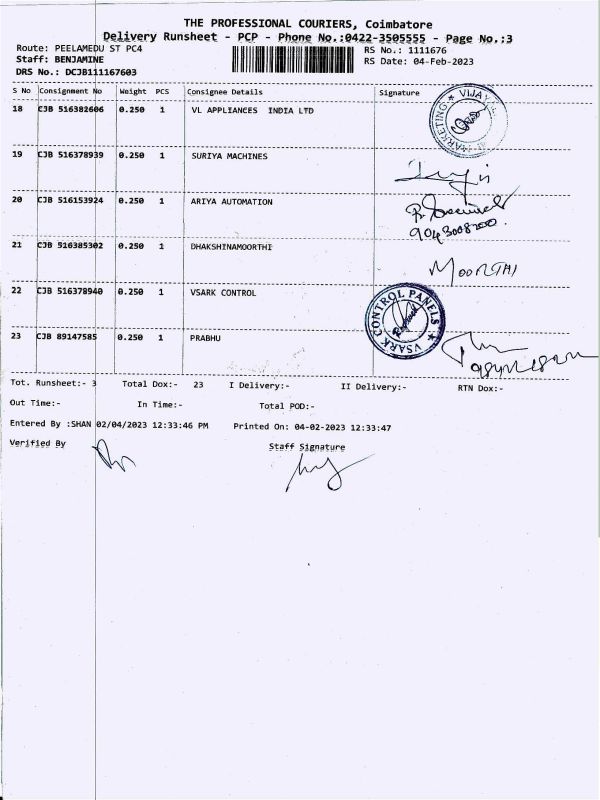 THE PROFESSIONAL COURIERS, Coimbatore
Delivery Runsheet - PCP - Phone No.:0422-3505555 - Page No.:3
Route: PEELAMEDU ST PC4 RS No.: 1111676
Staff: BENJAMINE RS Date: 04-Feb-2023
DRS No.: DCJB111167603
S No Consignment No Weight PCS Consignee Details Signature
18 CJB 516382606 0.250 1 VL APPLIANCES INDIA LTD
VIJAY MARKETING
19 CJB 516378939 0.250 1 SURIYA MACHINES
20 CJB 516153924 0.250 1 ARIYA AUTOMATION
21 CJB 516385302 0.250 1 DHAKSHINAMOORTHI
MOORTHI
22 CJB 516378940 0.250 1 VSARK CONTROL
VSARK CONTROL PANELS
23 CJB 89147585 0.250 1 PRABHU
Tot. Runsheet:- 3 Total Dox:- 23 I Delivery:- II Delivery:- RTN Dox:-
Out Time:- In Time:- Total POD:-
Entered By :SHAN 02/04/2023 12:33:46 PM Printed On: 04-02-2023 12:33:47
Verified By Staff Signature